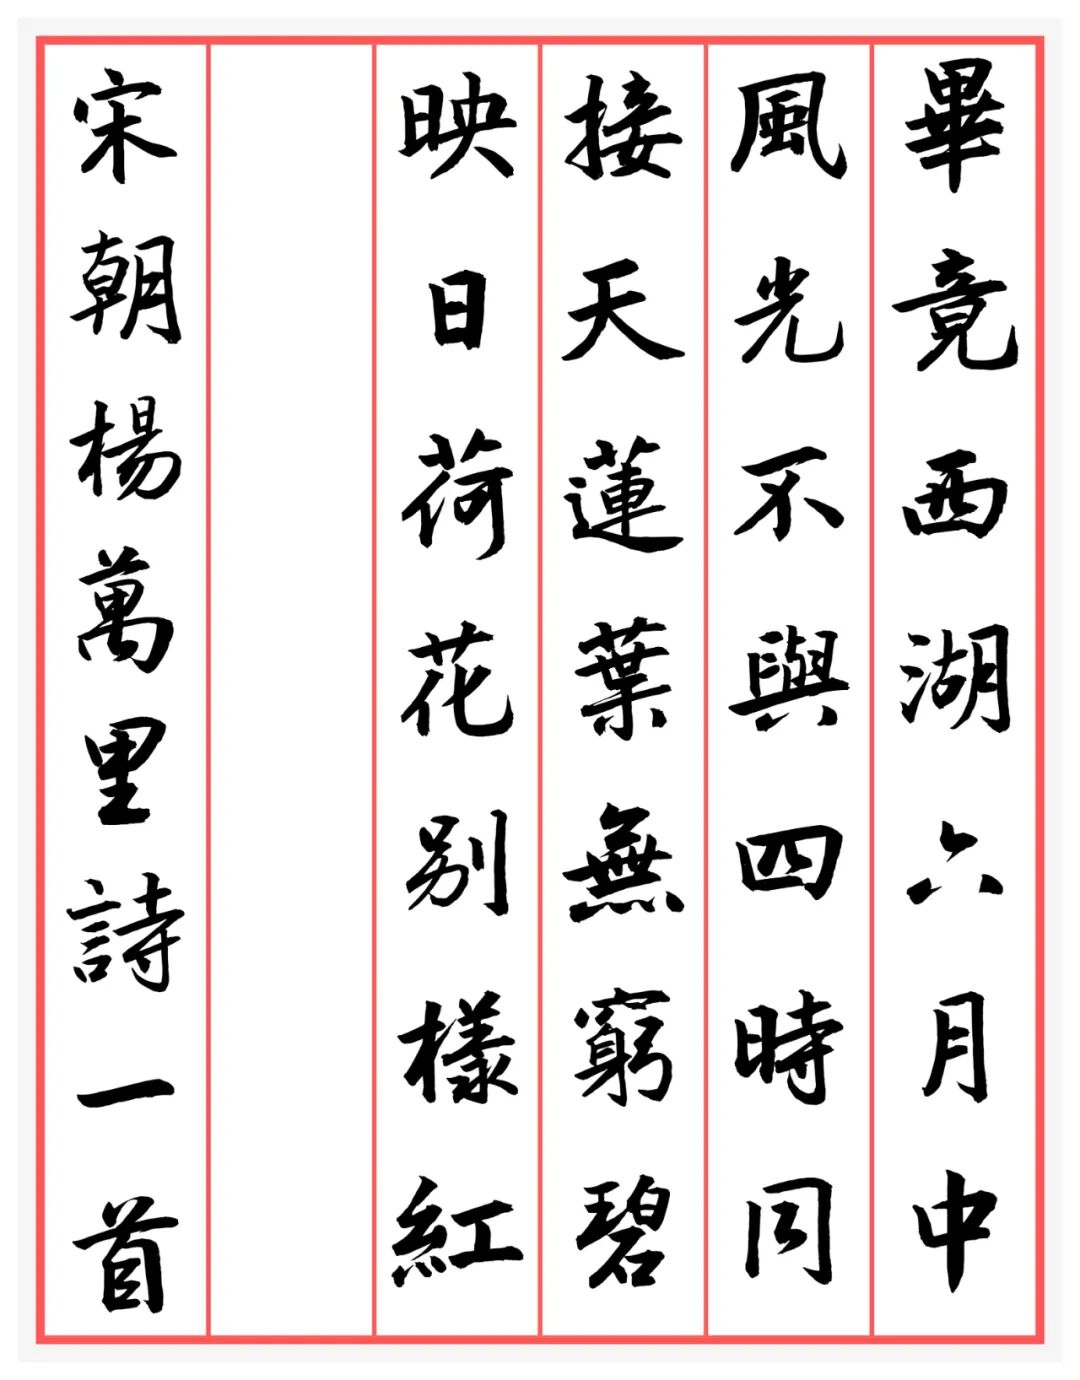 畢竟西湖六月中
風光不與四時同
接天蓮葉無窮碧
映日荷花别樣紅
宋朝楊萬里詩一首